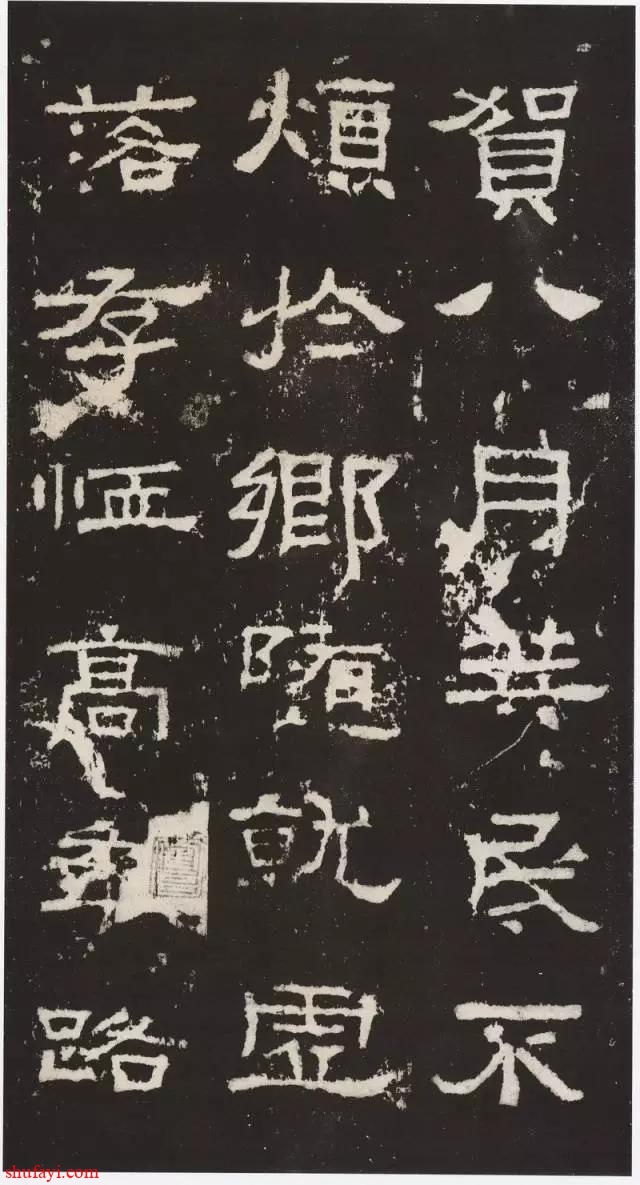 賀八月筭民不
煩扵鄉隨就虛
落存恤高年路
shufayi.com